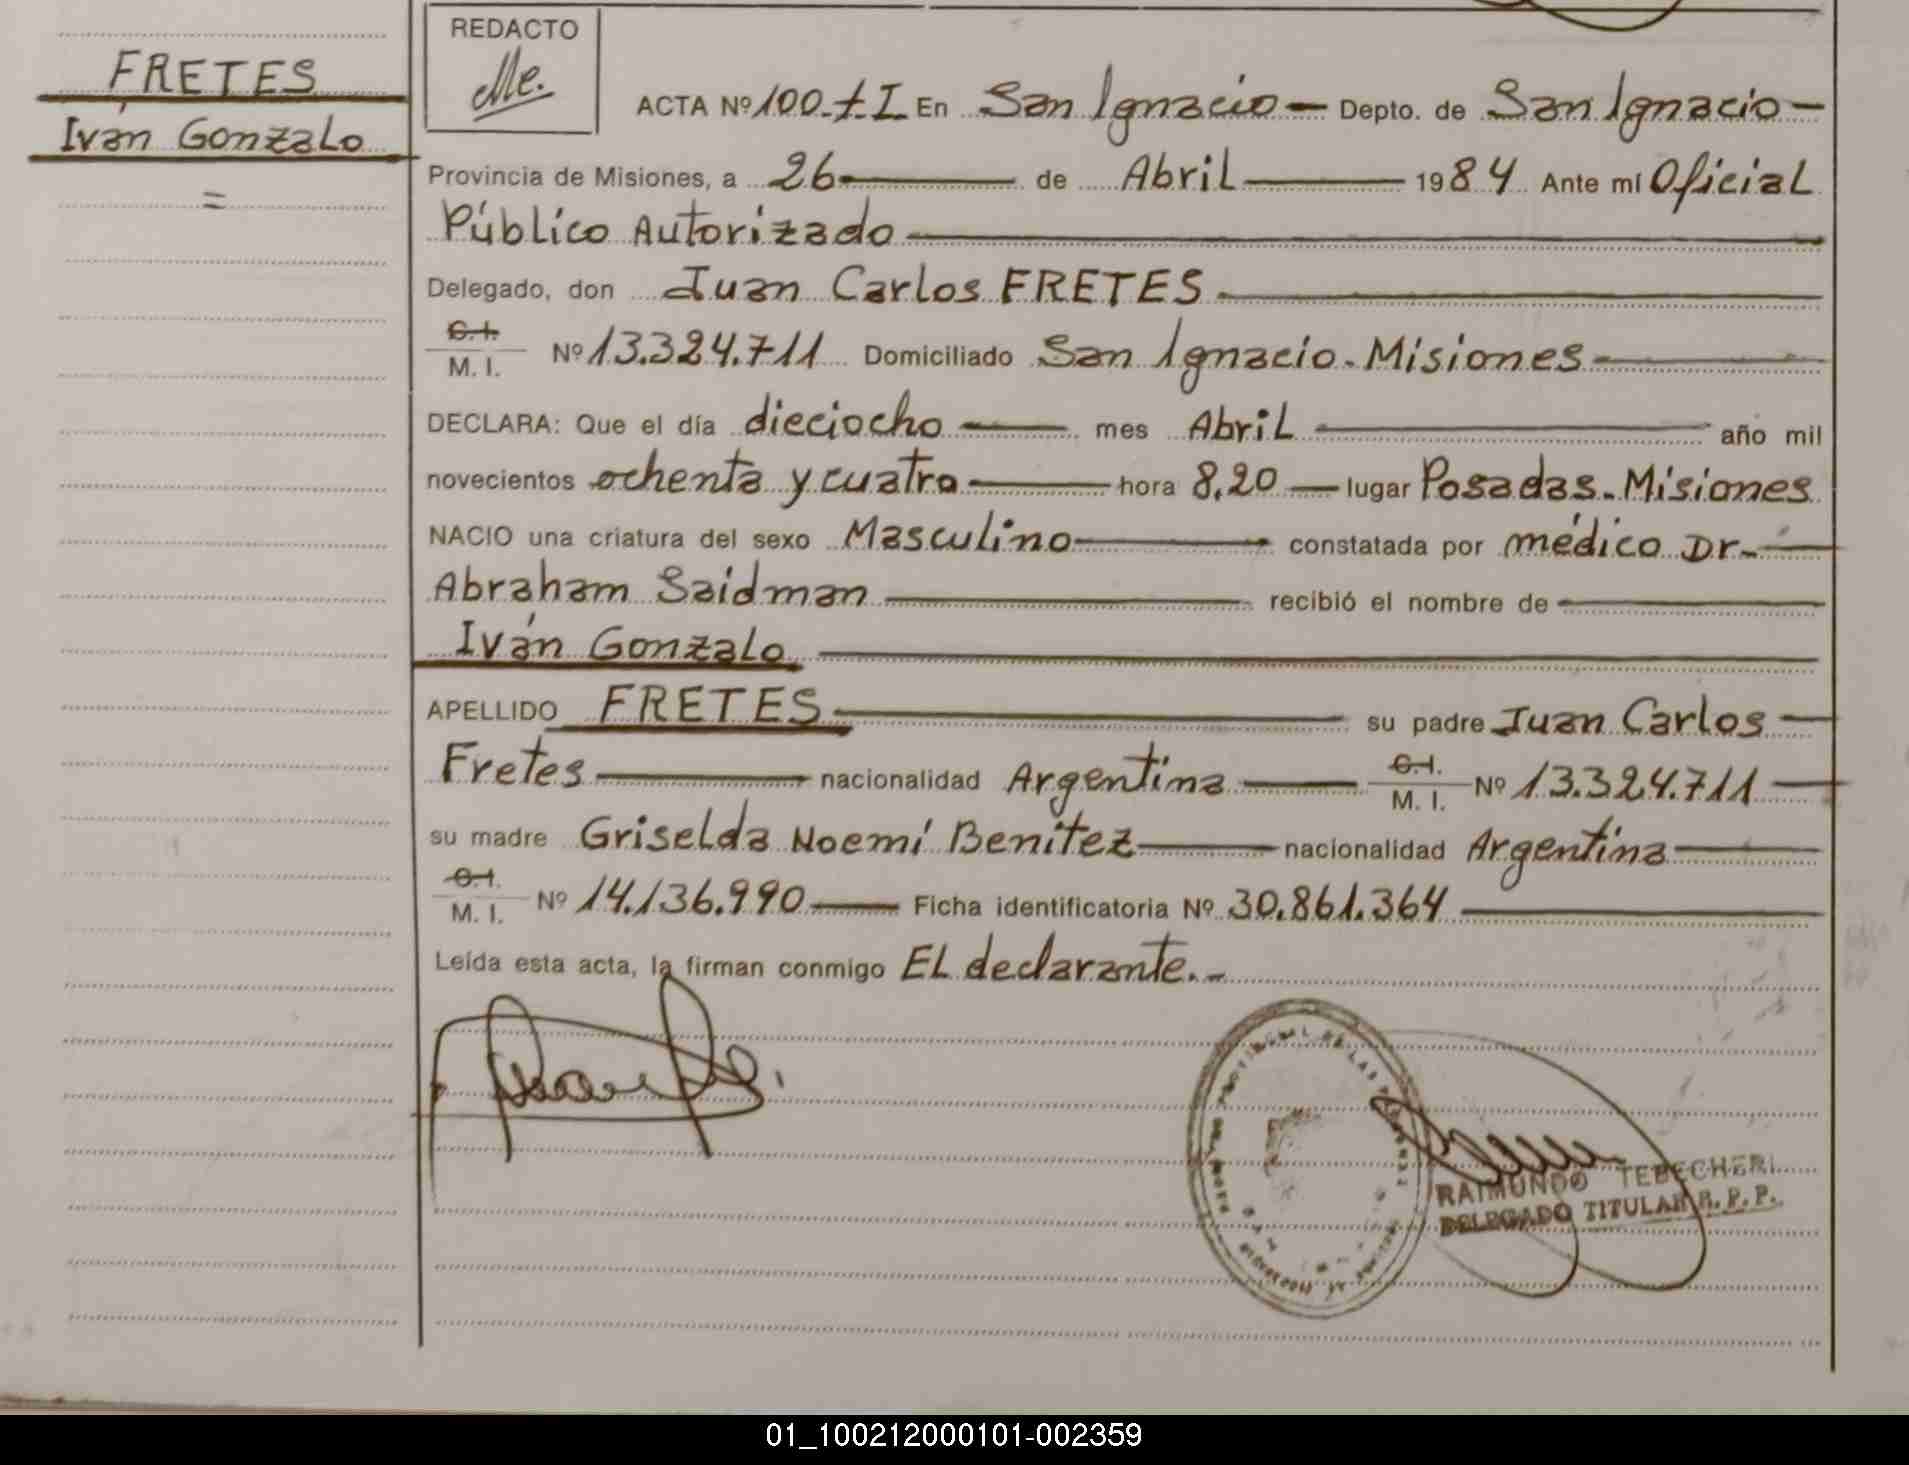 FRETES
Iván Gonzalo
=
REDACTO
ACTA Nº 100-tI En San Ignacio Depto. de San Ignacio
Provincia de Misiones, a 26 de Abril 1984 Ante mí Oficial
Público Autorizado
Delegado, don Juan Carlos FRETES
C.I.
M. I. Nº 13.324.711 Domiciliado San Ignacio-Misiones
DECLARA: Que el día dieciocho mes Abril año mil
novecientos ochenta y cuatro hora 8,20 lugar Posadas-Misiones
NACIO una criatura del sexo Masculino constatada por médico Dr.
Abraham Saidman recibió el nombre de
Iván Gonzalo
APELLIDO FRETES su padre Juan Carlos
Fretes nacionalidad Argentina C.I. M. I. Nº 13.324.711
su madre Griselda Noemí Benítez nacionalidad Argentina
C.I.
M. I. Nº 14.136.990 Ficha identificatoria Nº 30.861.364
Leída esta acta, la firman conmigo EL declarante.-
RAIMUNDO TEBECHERI
DELEGADO TITULAR R. P. P.
01_100212000101-002359